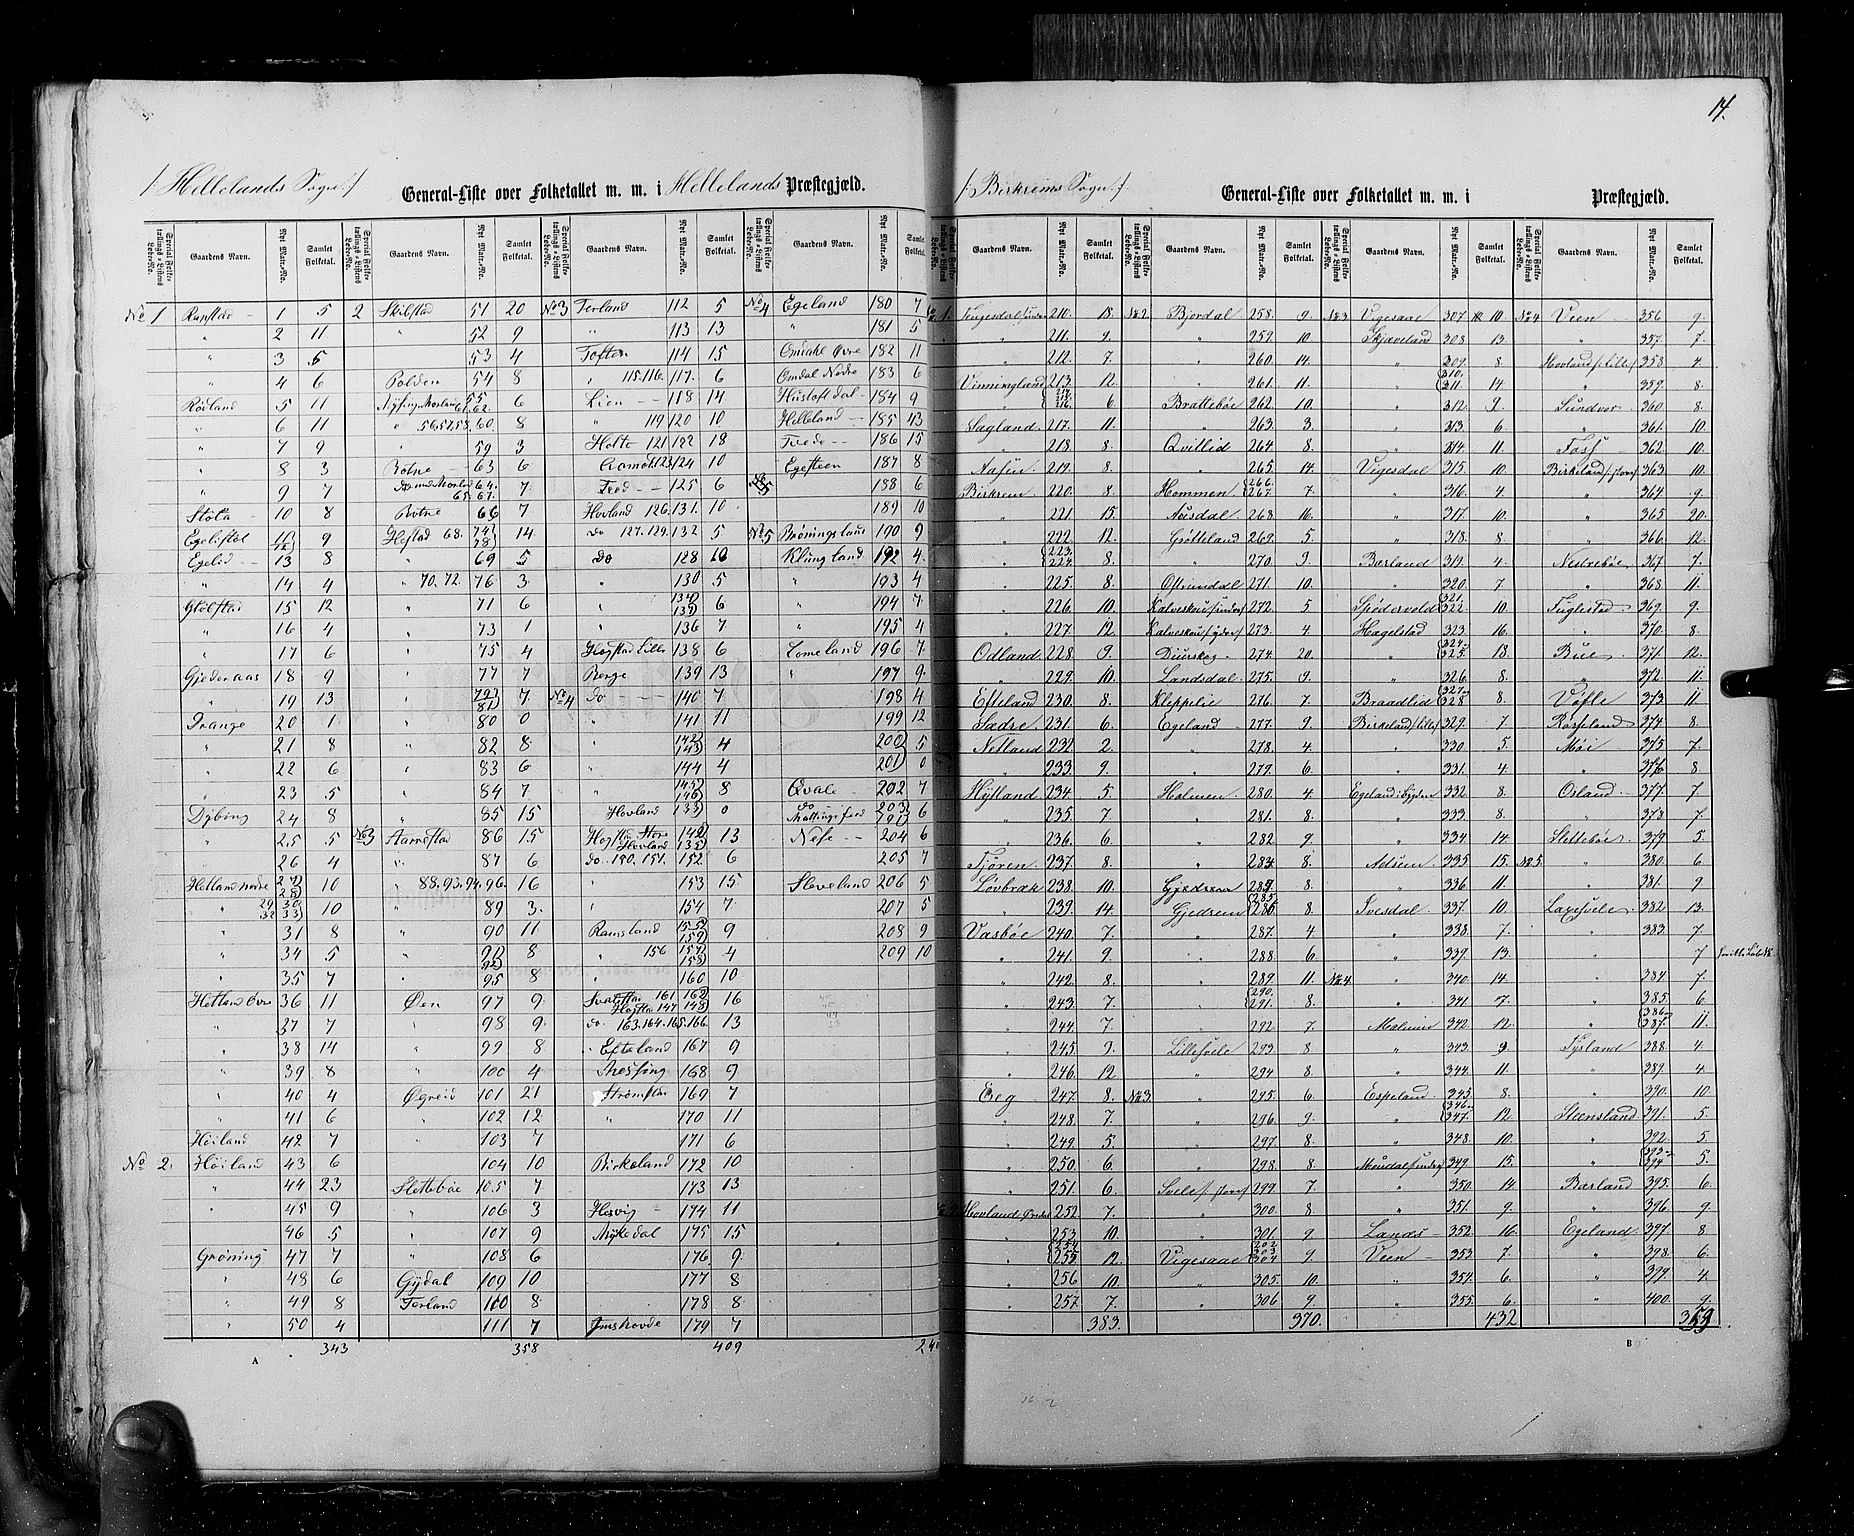 14.
/: Hellelands Sogn :/
General-Liste over Folketallet m. m. i Hellelands Præstegjæld.
Special Folketællings-Listens Løbe-No. Gaardens Navn. Nyt Matr.-No. Samlet Folketal.
No 1 Rapstad 1 5
" 2 11
" 3 5
" 4 6
Rødland 5 11
" 6 11
" 7 9
" 8 3
" 9 7
Støla 10 8
Egelistøl 11 12 9
Egelid 13 8
" 14 4
Gtølstad 15 12
" 16 4
" 17 6
Gjedenaas 18 9
" 19 13
Drange 20 1
" 21 8
" 22 6
" 23 5
Dybing 24 8
" 25 5
" 26 4
Hetland nedre 27 28 10
" 29 30 32 33 10
" 31 8
" 34 5
" 35 7
Hetland øvre 36 11
" 37 7
" 38 14
" 39 8
" 40 4
" 41 6
Höiland 42 7
No 2. Höiland 43 6
" 44 23
" 45 9
" 46 5
Grøning 47 7
" 48 6
" 49 8
" 50 4
343
2 Skilstad 51 20
" 52 9
" 53 4
Polden 54 8
55 61.62. 6
" 56.57.58.60 8
" 59 3
Botne 63 6
64. 65. 67. 7
Botne 66 7
Hestad 68. 74 78 14
" 69 5
" 70. 72. 76 3
" 71 6
" 73 1
" 75 4
" 77 7
" 79 81 7
" 80 0
" 82 8
" 83 6
" 84 7
" 85 15
No 3 Aarrestad 86 15
" 87 6
" 88. 93. 94. 96. 16
" 89 3.
" 90 11
" 91 92 8
" 95 8
Øen 97 9
" 98 9.
" 99 8
" 100 4
Øgreid 101 21
" 102 12
" 103 7
" 104 10
Slettebøe 105 7
" 106 3
" 107 9
" 108 6
Gydal 109 10
Terland 110 8
" 111 7
358
No 3 Terland 112 5
" 113 13
Toften 114 15
" 115. 116. 117. 6
Lien 118 14
" 119 120 10
Holte 121 122 18
Aamot 123 124 10
Tved 125 6
Hovland 126. 131. 10
Do 127. 129. 132 5
Do 128 10
" 130 5
" 134 137 6
" 136 7
Hogstad Lille 138 6
Berge 139 13
No 4 Do 140 7
" 141 11
" 142 143 4
" 144 4
" 145 146 8
Hovland 133 0
Hogstad Store 149 Hovland 135 13
do 150. 151. 152 6
" 153 15
" 154 7
Ramsland 155 159 9
" 156 157 158 4
" 160 10
161 162 147 148 16
do 163. 164. 165. 166. 13
Efteland 167 9
168 9
Strømstad 169 7
" 170 11
" 171 6
Birkeland 172 10
" 173 13
174 11
Myke dal 175 15
" 176 9
177 8
178 8
Imshovde 179 7
409
No 4 Egeland 180 7
" 181 5
Omdahl Øvre 182 11
Omdal Nedre 183 6
Hustoft dal 184 9
Helleland 185 13
Tvedo 186 15
Egesteen 187 8
188 6
189 10
No 5 Brøningsland 190 9
Klungland 192 4
" 193 4
" 194 7
" 195 4
Lomeland 196 7
" 197 9
198 4
199 12
200 5
201 0
Qvale 202 7
do 203 191 6
Nese 204 6
205 7
Sleveland 206 5
207 5
208 9
209 10
A
/: Birkrems Sogn :/
General-Liste over Folketallet m. m. i Præstegjæld.
Special Folketællings-Listens Løbe-No. Gaardens Navn. Nyt Matr.-No. Samlet Folketal.
210. 18.
" 211. 9.
" 212. 7.
Vinningland 213. 12.
214. 215. 216. 6.
Sagland 217. 11.
" 218. 8.
Aasen 219. 8.
Birkrem 220. 8.
" 221. 15.
" 222. 12.
" 223. 224. 8.
" 225. 8.
" 226. 10.
" 227. 12.
Odland 228. 9.
" 229. 10.
Efteland 230. 8.
Sædre 231. 6.
Netland 232. 2.
" 233. 9.
Hytland 234. 5.
" 235. 7.
" 236. 6.
Tjøren 237. 8.
Løvbræk 238. 10.
" 239. 14.
Vasbøe 240. 7.
" 241. 9.
" 242. 8.
" 243. 7.
" 244. 7.
" 245. 9.
" 246. 12.
Eeg 247. 8.
" 248. 7.
" 249. 5.
" 250. 6.
" 251. 6.
Hovland Øvre 252. 7.
" 253. 10.
254 255. 12.
" 256 10.
" 257. 7.
383.
No 2. Bjordal 258. 9.
" 259. 10.
" 260. 14.
" 261. 11.
Brattebøe 262. 10.
" 263. 3.
Qvitlid 264. 8.
" 265. 14.
Hommen 266. 267. 7.
Aasdal 268. 16.
Grøtteland 269. 5.
" 270. 9.
Ostrumdal 271. 10.
Kalveskou /:inder/ 272. 5
Kalveskou /:yder/ 273. 4.
Diurskog 274. 20.
Landsdal 275. 9.
Kleppelie 276. 7.
Egeland 277. 9.
" 278. 4.
" 279. 6.
Holmen 280. 4.
" 281. 8.
" 282. 9.
" 283. 8.
Gjedrem 284. 8.
Gjedrem 285. 286. 8.
" 287. 4.
" 288. 6.
" 289. 11.
" 290. 291. 8.
" 292. 7.
Lillesvele 293. 8.
" 294. 8.
No 3. " 295. 6.
" 296. 9.
" 297. 8.
" 298. 8.
Svele /: store/ 299. 7.
" 300. 8
" 301. 9.
Vigesaae 302. 303 304 9.
" 305. 10.
" 306 9.
370.
No 3 Vigesaae 307. 10.
Skjæveland 308. 13.
" 309. 8.
" 310. 311. 14.
" 312. 2.
" 313. 6.
" 314. 11.
Vigesdal 315. 10.
" 316. 4.
" 317. 10.
" 318. 8.
Bærland 319. 4.
" 320. 7.
Spødervold 321. 322. 10.
Hagelstad 323. 16.
" 324. 325. 18.
" 326. 8.
Braadlid 327. 328 8.
Birkeland /:lille/ 329. 7
" 330. 5.
" 331. 4.
Egeland i Bygden 332. 8.
" 333. 8.
" 334. 14.
Adsem 335. 15.
" 336. 11.
Ivesdal 337. 10.
" 338. 7.
" 339. 13.
No 4. " 340. 14.
" 341. 7.
Malmin 342. 12.
" 343. 9.
" 344. 11.
Espeland 345. 8.
" 346. 347. 12.
" 348. 10.
349. 15.
" 350. 14.
" 351. 9.
Landes 352. 16.
Veen 353. 7.
" 354. 6.
" 355. 6.
432
No 4 Veen 356 9.
" 357. 7.
Hovland /: lille/ 358 4.
" 359. 8.
Sundvor 360. 8.
" 361. 10.
Fosf 362. 10.
Birkeland /: store/ 363. 10.
" 364. 9.
" 365. 20.
" 366. 12.
Nedrebøe 367. 7.
" 368. 11.
Fuglestad 369. 9.
" 370. 8.
Bue 371. 12.
" 372. 11.
373. 11.
374. 8.
Møi 375. 7.
" 376. 8.
Osland 377. 7
" 378. 7.
Slettebøe 379. 5.
No 5. " 380. 6
" 381. 9
Laxesvele 382. 13.
" 383. 7.
" 7
" 384. 7.
" 385. 6
" 386. 387. 11.
Tysland 388. 4.
" 389. 4.
" 390. 10.
Steensland 391. 5.
" 392. 5.
" 393. 394. 5.
Bærland 395. 6.
" 396. 9.
Egeland 397. 8
" 398. 6.
" 399. 4.
" 400. 9.
B